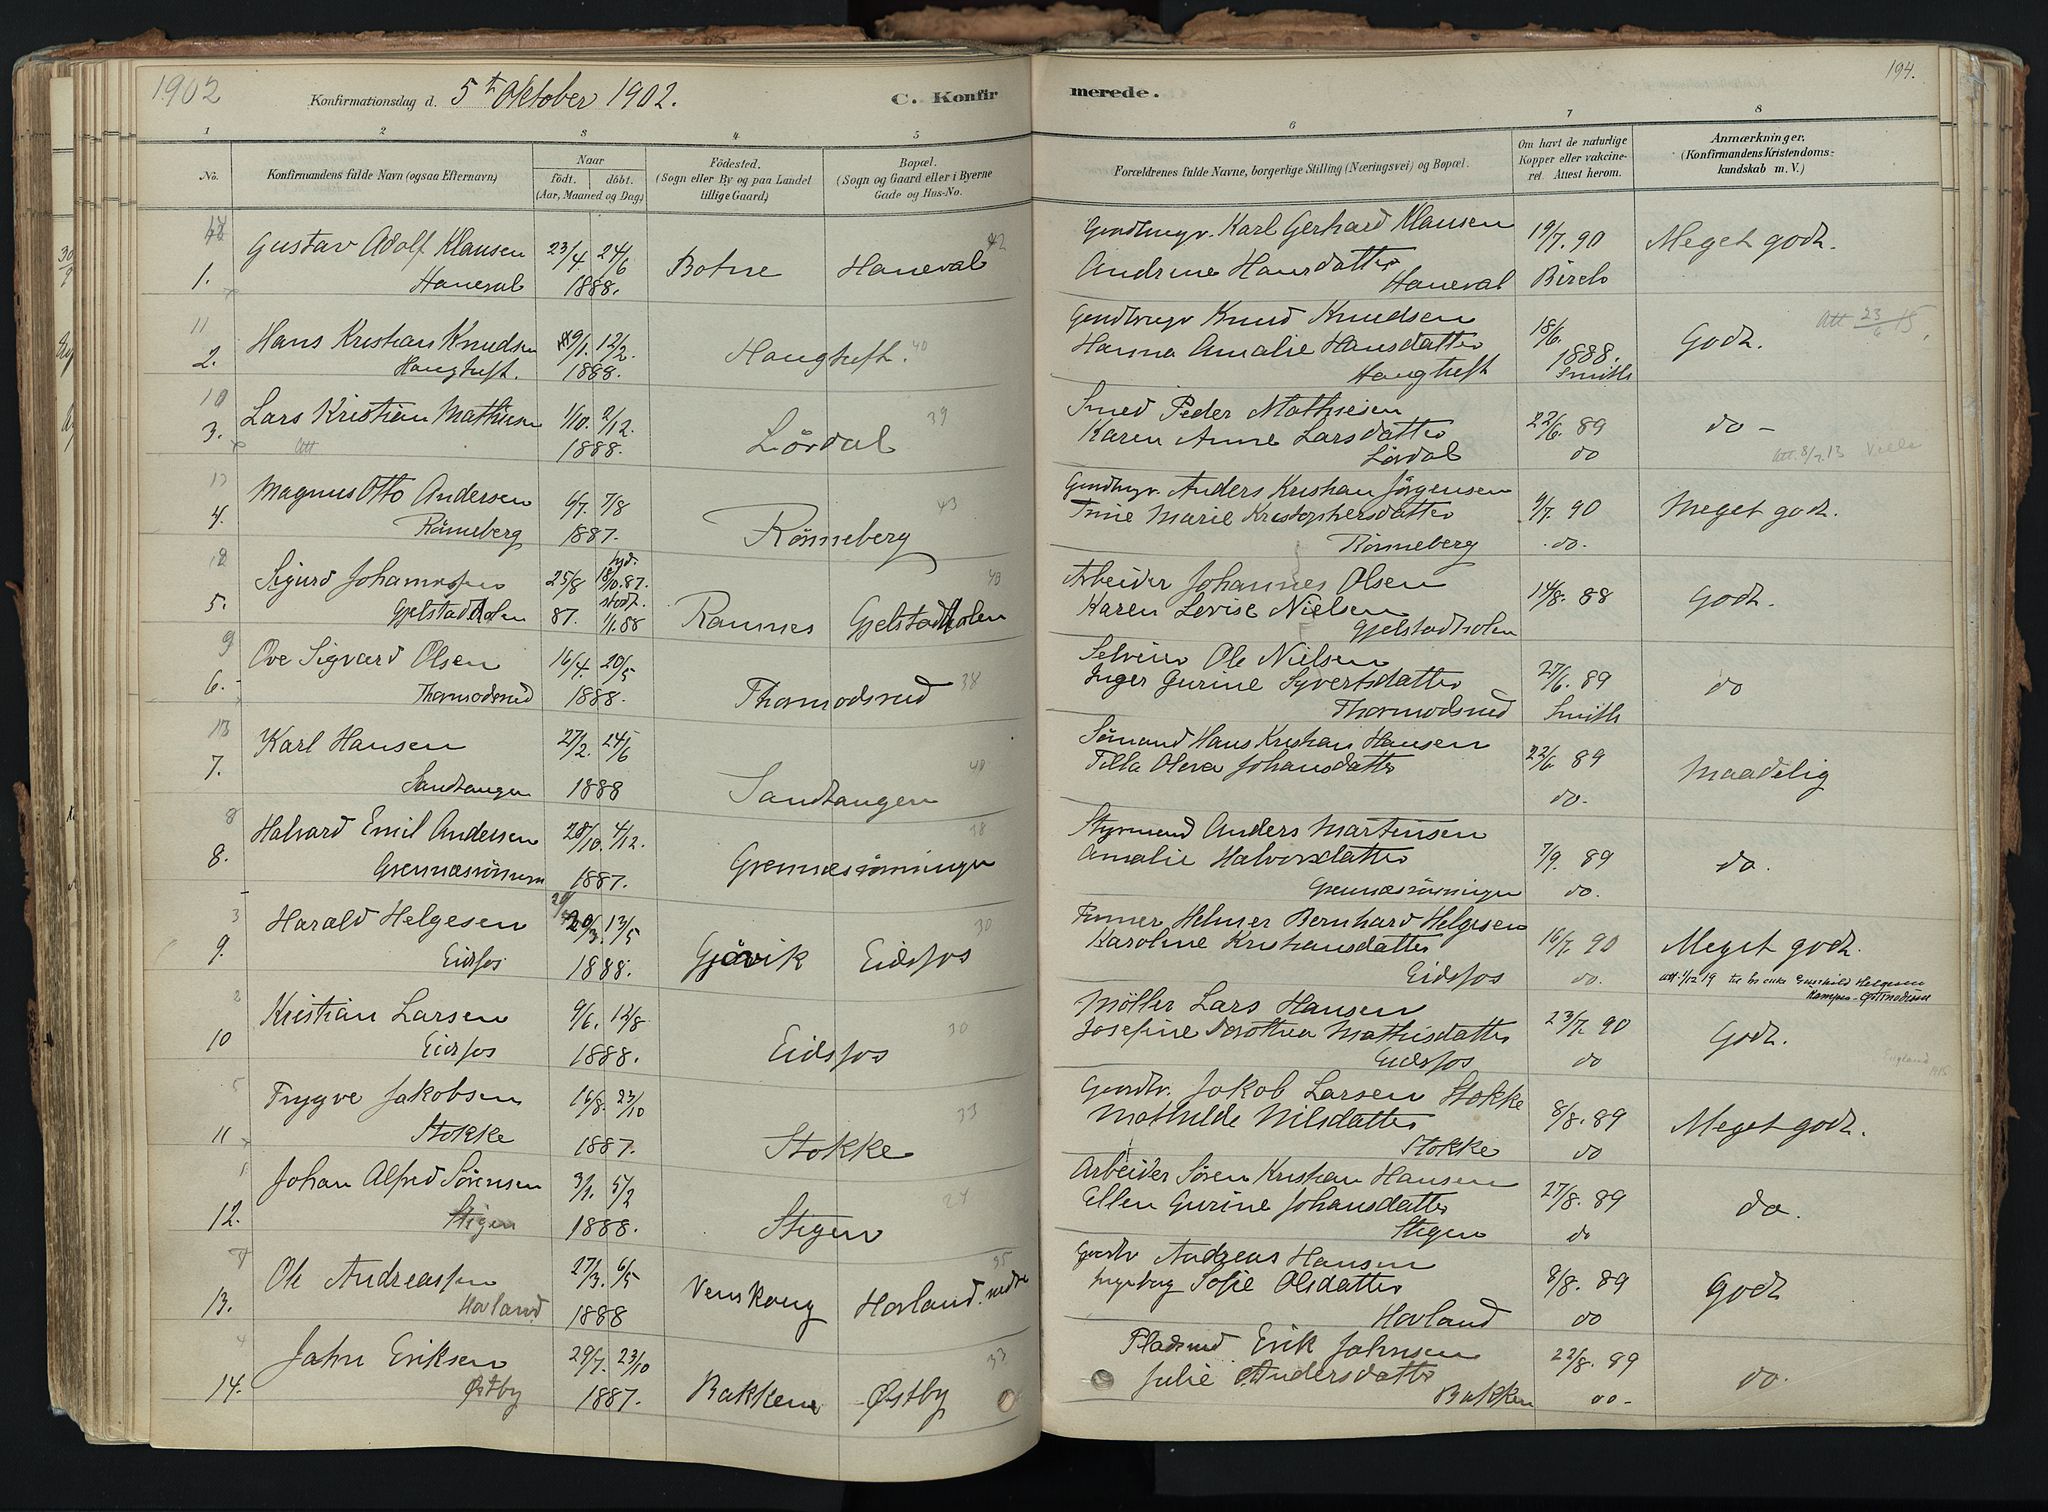 1902
Konfirmationsdag d. 5te Oktober 1902.
C. Konfirmerede.
194.
1 2 3 4 5 6 7 8
No.
Konfirmandens fulde Navn (ogsaa Efternavn)
Naar
födt. döbt.
(Aar, Maaned og Dag)
Födested.
(Sogn eller By og paa Landet
tillige Gaard)
Bopæl.
(Sogn og Gaard eller i Byerne
Gade og Hus-No.
Forældrenes fulde Navne, borgerlige Stilling (Næringsvei) og Bopæl.
Om havt de naturlige
Kopper eller vakcine-
ret. Attest herom.
Anmærkninger.
(Konfirmandens Kristendoms-
kundskab m. V.)
1. Gustav Adolf Klausen 23/4 24/6 Botne Haneval 42 Karl Gerhard Klausen 19/7. 90 Meget godt.
Haneval 1888. Andrine Hansdatter Haneval Birch
11
2. Hans Kristian Knudsen 12/2. Haugtuft. 40 Knud Knudsen 18/6. Godt. Att 23/6 15
Haugtuft. 1888. Hanna Amalie Hansdatter Haugtuft 1888. Smith
10
3. Lars Kristian Mathisen 1/10. 2/12. Lørdal 39 Smed Peder Mathiesen 22/6. 89 do -
Att 1888. Karen Anne Larsdatter Lørdal do Att. 8/7.13
4. Magnus Otto Andersen 6/7. 7/8 Rønneberg 43 Anders Kristian Jørgensen 9/7. 90 Meget godt.
Rønneberg 1887. Marie Kristophersdatter Rønneberg do.
12
5. Sigurd Johannessen 25/8 87. Ramnes Gjelstadholen 43 Arbeider Johannes Olsen 14/8. 88 Godt.
Gjelstadholen 87. stadf. 1/1.88 Karen Levise Nielsen Gjelstadholen
9
6. Ove Sigvard Olsen 16/4. 20/5 Thormodsrud 38 Selveier Ole Nielsen 27/6. 89 do
Thormodsrud 1888. Inger Gurine Syvertsdatter Thormodsrud Smith
13
7. Karl Hansen 27/2. 24/6 Sandtangen 40 Sømand Hans Kristian Hansen 22/6. 89 Maadelig
Sandtangen 1888 Olava Johansdatter do.
8
8. Halvard Emil Andersen 28/10. 4/12. Grennæsrønningen 38 Styrmand Anders Martinsen 7/9. 89 do.
1887. Amalie Halvorsdatter Grennæsrønningen do.
3
9. Harald Helgesen 20/3. 13/5 Gjøvik Eidsfos 30 Helmer Bernhard Helgesen 16/7. 90 Meget godt.
Eidsfos 1888. Karoline Kristiansdatter Eidsfos do. att. 1/12 19
2
10 Kristian Larsen 9/6. 12/8 Eidsfos 30 Møller Lars Hansen 23/7. 90 Godt.
Eidsfos 1888. Josefine Dorothea Mathisdatter Eidsfos do England 1915
5
11 Trygve Jakobsen 16/8. 23/10 Stokke 33 Jakob Larsen Stokke 8/8. 89 Meget godt.
Stokke 1887. Mathilde Nilsdatter Stokke do
1
12. Johan Alfred Sørensen 3/1. 5/2 Stigen 27 Arbeider Søren Kristian Hansen 27/8. 89 do.
Stigen 1888. Ellen Gurine Johansdatter Stigen do
13. Ole Andreassen 27/3. 6/5 Venskoug Hovland nedre 35 Andreas Hansen 8/8. 89 Godt
Hovland 1888 Ingeborg Sofie Olsdatter Hovland do
4
14. Jahn Eriksen 29/7. 23/10 Bakken Østby 33 Pladsmd Erik Jahnsen 22/8. 89 do.
Østby 1887. Julie Andersdatter Bakken do-